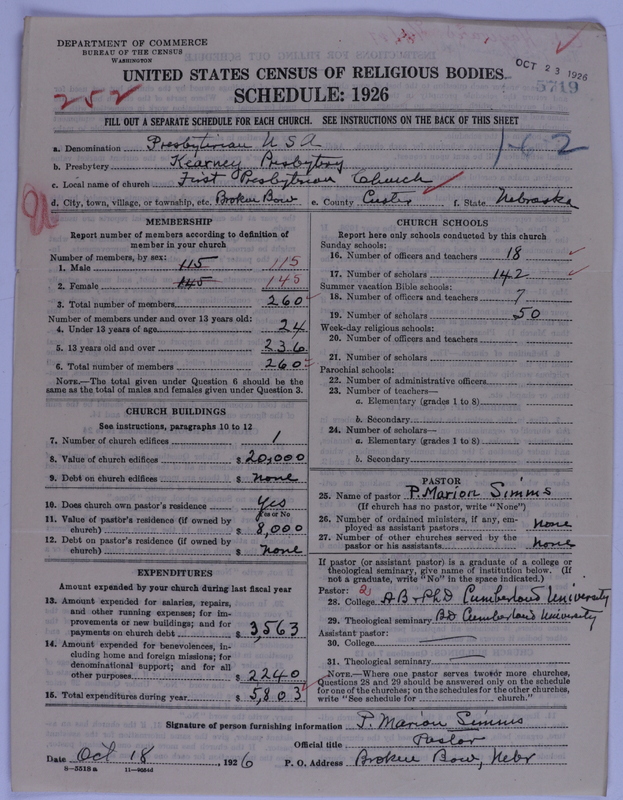 DEPARTMENT OF COMMERCE
BUREAU OF THE CENSUS
WASHINGTON
OCT 23 1926
5719
UNITED STATES CENSUS OF RELIGIOUS BODIES
252
SCHEDULE: 1926
FILL OUT A SEPARATE SCHEDULE FOR EACH CHURCH. SEE INSTRUCTIONS ON THE BACK OF THIS SHEET
1-62
a. Denomination Presbyterian U S A
b. Presbytery Kearney Presbytery
c. Local name of church First Presbyterian Church
d. City, town, village, or township, etc. Broken Bow e. County Custer f. State Nebraska
MEMBERSHIP
Report number of members according to definition of member in your church
Number of members, by sex:
1. Male 115 115
2. Female 145 145
3. Total number of members 260
Number of members under and over 13 years old:
4. Under 13 years of age 24
5. 13 years old and over 236
6. Total number of members 260
NOTE.—The total given under Question 6 should be the same as the total of males and females given under Question 3.
CHURCH BUILDINGS
See instructions, paragraphs 10 to 12
7. Number of church edifices 1
8. Value of church edifices $ 20,000
9. Debt on church edifices $ none
10. Does church own pastor's residence Yes
Yes or No
11. Value of pastor's residence (if owned by church) $ 8,000
12. Debt on pastor's residence (if owned by church) $ None
EXPENDITURES
Amount expended by your church during last fiscal year
13. Amount expended for salaries, repairs, and other running expenses; for improvements or new buildings; and for payments on church debt $ 3,563
14. Amount expended for benevolences, including home and foreign missions; for denominational support; and for all other purposes $ 2240
15. Total expenditures during year $ 5,803
CHURCH SCHOOLS
Report here only schools conducted by this church
Sunday schools:
16. Number of officers and teachers 18
17. Number of scholars 142
Summer vacation Bible schools:
18. Number of officers and teachers 7
19. Number of scholars 50
Week-day religious schools:
20. Number of officers and teachers
21. Number of scholars
Parochial schools:
22. Number of administrative officers
23. Number of teachers—
a. Elementary (grades 1 to 8)
b. Secondary
24. Number of scholars—
a. Elementary (grades 1 to 8)
b. Secondary
PASTOR
25. Name of pastor P. Marion Simms
(If church has no pastor, write "None")
26. Number of ordained ministers, if any, employed as assistant pastors none
27. Number of other churches served by the pastor or his assistants None
If pastor (or assistant pastor) is a graduate of a college or theological seminary, give name of institution below. (If not a graduate, write "No" in the space indicated.)
Pastor: 2
28. College AB + PhD Cumberland University
29. Theological seminary BD Cumberland University
Assistant pastor:
30. College
31. Theological seminary
NOTE.—Where one pastor serves two or more churches, Questions 28 and 29 should be answered only on the schedule for one of the churches; on the schedules for the other churches, write "See schedule for church."
Signature of person furnishing information P. Marion Simms
Official title Pastor
Date Oct 18, 1926 P. O. Address Broken Bow, Nebr
8-5518 a